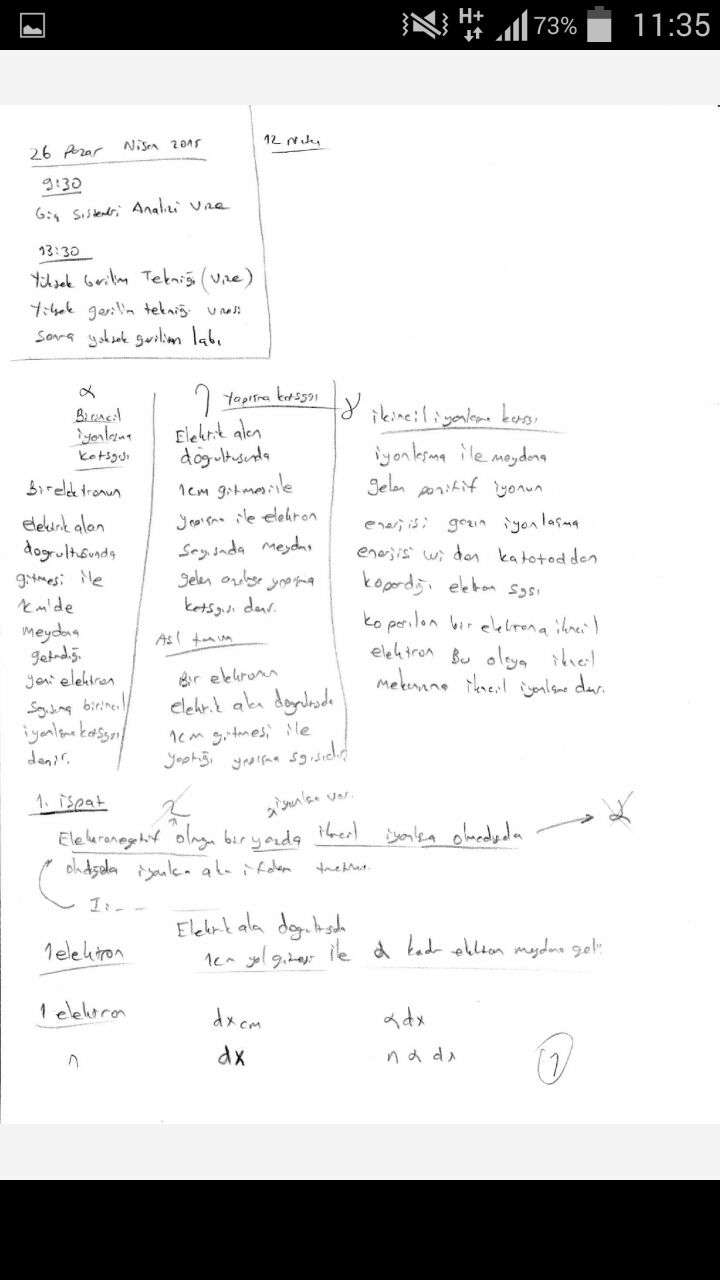 H+ 73% 11:35
26 Pazar Nisan 2015
12
9:30
Güç Sistemleri Analizi Vize
13:30
Yüksek Gerilim Tekniği (Vize)
Yüksek gerilim tekniği vizesi
Sonra yüksek gerilim labı
α
Birincil
iyonlaşma
katsayısı
Bir elektronun
elektrik alan
doğrultusunda
gitmesi ile
1cm'de
meydana
getirdiği
yeni elektron
sayısına birincil
iyonlaşma katsayısı
denir.
η Yapışma katsayısı
Elektrik alan
doğrultusunda
1cm gitmesi ile
yapışma ile elektron
sayısında meydana
gelen azalışa yapışma
katsayısı denir.
Asıl tanım
Bir elektronun
elektrik alan doğrultusunda
1cm gitmesi ile
yaptığı yapışma sayısıdır
γ ikincil iyonlaşma katsayısı
iyonlaşma ile meydana
gelen pozitif iyonun
enerjisi gazın iyonlaşma
enerjisi wi den katottan
kopardığı elektron sayısı
koparılan bir elektrona ikincil
elektron Bu olaya ikincil
iyonlaşma denir.
1. ispat
iyonlaşma var.
Elektronegatif olmayan bir gazda ikincil iyonlaşma olmadığında
iyonlaşma
I:
1 elektron
Elektrik alan doğrultusunda
1cm yol gitmesi ile α kadar elektron meydana gelir
1 elektron dx cm αdx
n dx n α dx
1